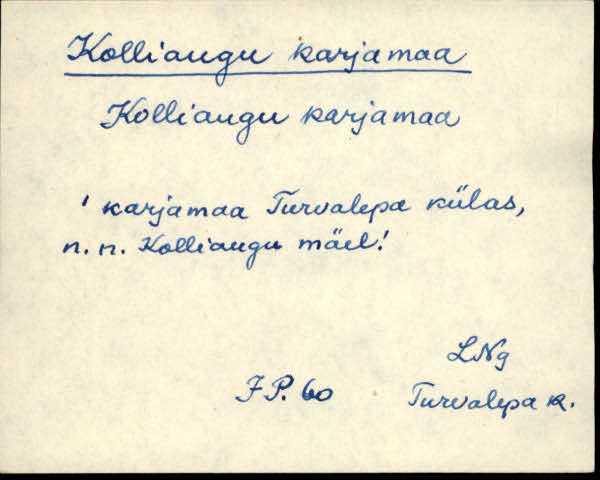 Kolliaugu karjamaa
Kolliaugu karjamaa
' karjamaa Turvalepa külas,
n. n. Kolliaugu mäel!
LNg
J P. 60
Turvalepa k.